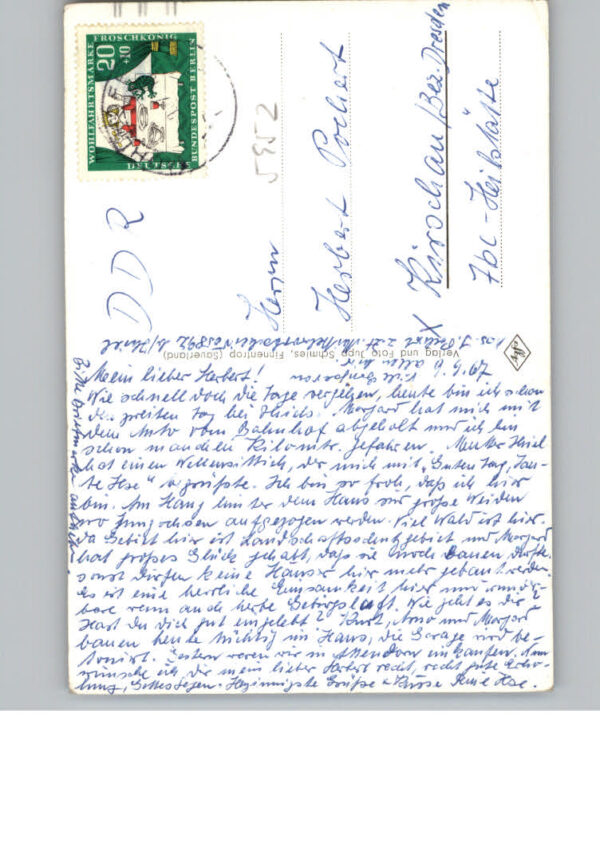 WOHLFAHRTSMARKE
FROSCHKÖNIG
20
+10
DEUTSCHE
BUNDESPOST BERLIN
DDR
5952
Herrn
Herbert Pochert
Kirschau/Bez. Dresden
Tbc-Heilstätte
Verlag und Foto Jupp Schmies, Finnentrop (Sauerland)
Mein lieber Herbert!
Wie schnell doch die Tage vergehen, heute bin ich schon
den zweiten Tag bei Thiels. Margard hat mich mit
dem Auto vom Bahnhof abgeholt und ich bin
schon manchen Kilomtr. gefahren. Mutter Thiel
hat einen Wellensittich, der mich mit "Guten Tag, Tan-
te Ilse" begrüßte. Ich bin so froh, daß ich hier
bin. Am Hang hinter dem Haus sind große Weiden
wo Jungochsen aufgezogen werden. Viel Wald ist hier.
Das Gebiet hier ist Landschaftsschutzgebiet und Margard
hat großes Glück gehabt, daß sie noch bauen durfte
sonst dürfen keine Häuser hier mehr gebaut werden.
Es ist eine herrliche Einsamkeit hier und wunder-
bare reine auch herbe Gebirgsluft. Wie geht es dir?
Hast Du dich gut eingelebt? Kurt, Arno und Margard
bauen heute tüchtig im Haus, die Garage wird be-
toniert. Gestern waren wir in Attendorn einkaufen. Nun
wünsche ich dir mein lieber Herbert recht, recht gute Erho-
lung, Gottes Segen. Herzinnigste Grüße u. Küsse Deine Ilse.
Bitte Briefmarke